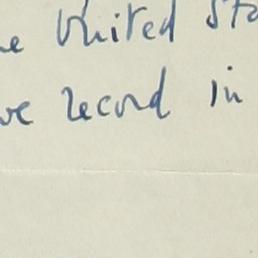 United Sta
ve record in